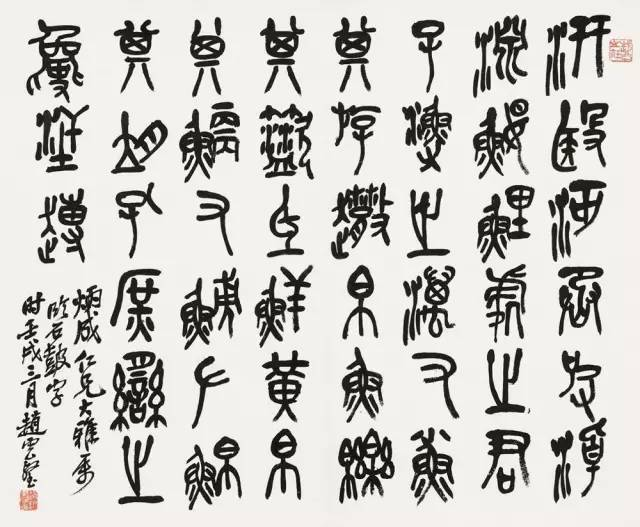 汧殹沔丞皮淖
淵鰋鯉處之君
子漁之澫又魚
其斿帛魚皪
其氐鮮黃帛
其鯾又又鮊
其孔庶臠之
趠
仁兄大雅屬
臨石鼓字
時壬戌三月趙雲壑